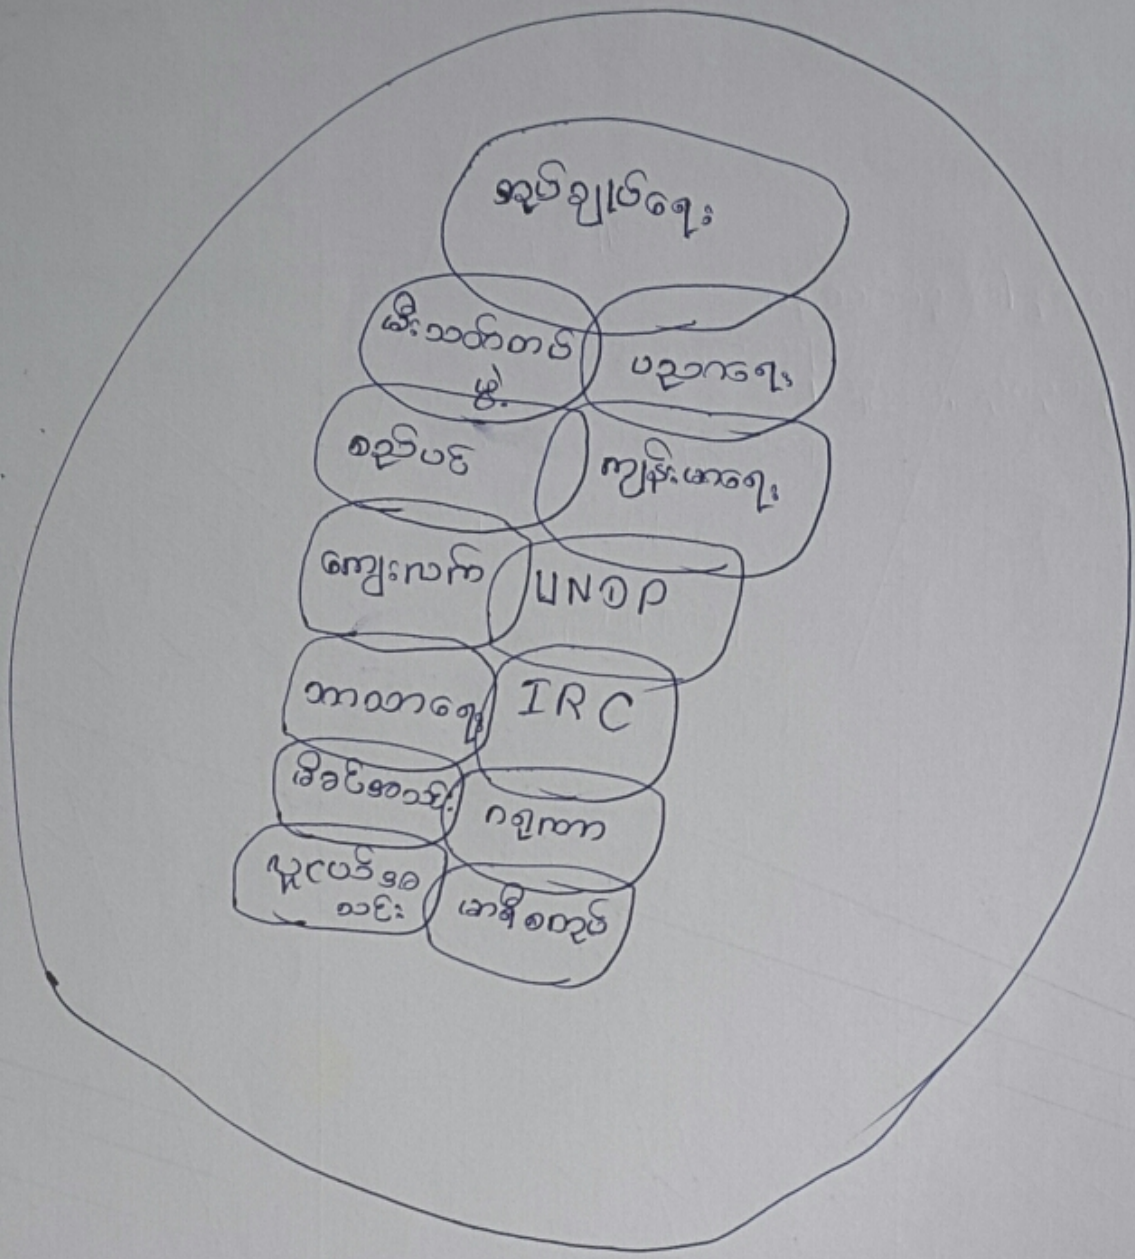 အုပ်ချုပ်ရေး
မီးသတ်တပ်
ဖွဲ့
ပညာရေး
စည်ပင်
ကျန်းမာရေး
ကျေးလက်
UNDP
ဘာသာရေး
IRC
မိခင်အသင်း
ဂရုဏာ
လူငယ်အ
သင်း
မာရီစတုပ်